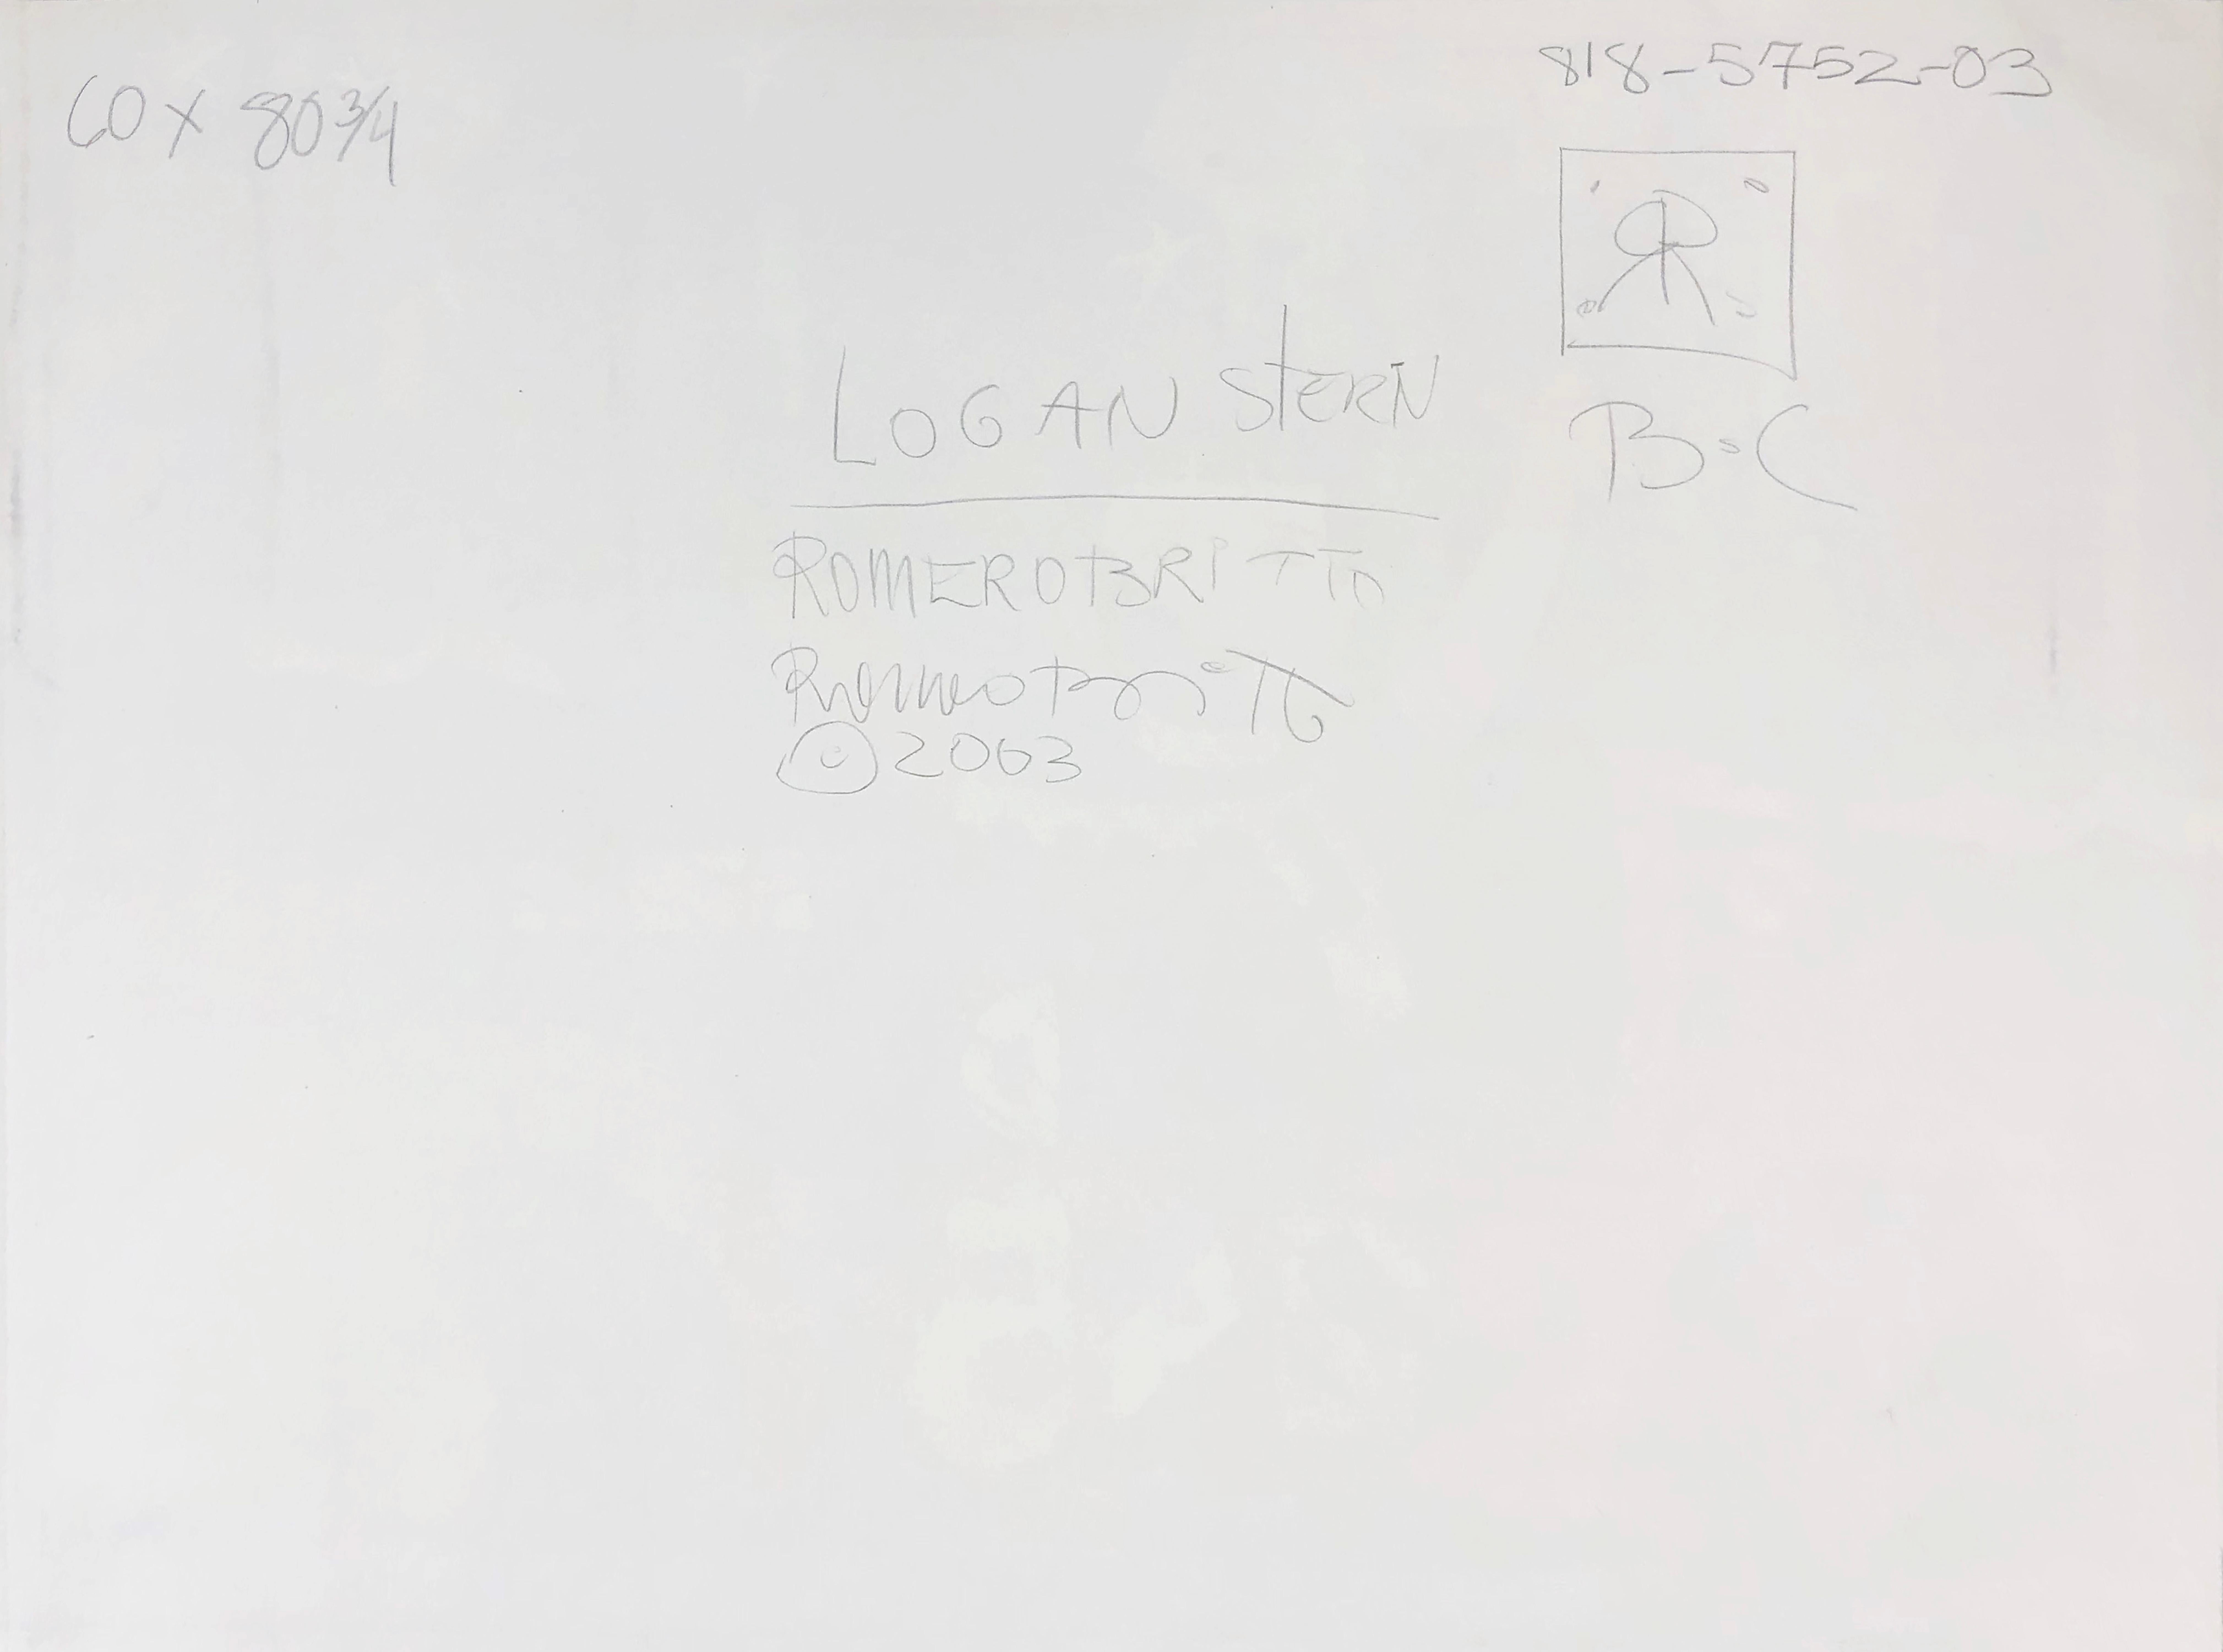 818-5752-03
60 x 80 3/4
LOGAN STERN
B=C
ROMERO BRITTO
Romero Britto
© 2003